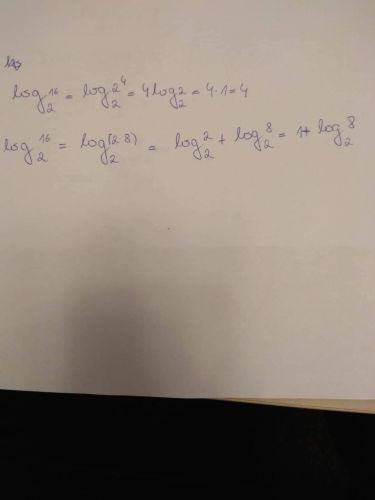 log
log₂¹⁶ = log₂2⁴ = 4log₂2 = 4·1=4
log₂¹⁶ = log₂(2·8) = log₂2 + log₂8 = 1+ log₂8